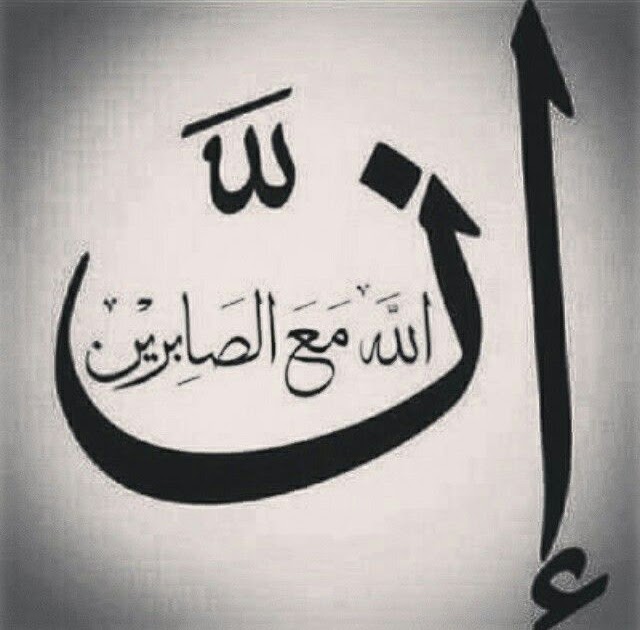 إنَّ
اللَّه مَعَ الصَابِرين